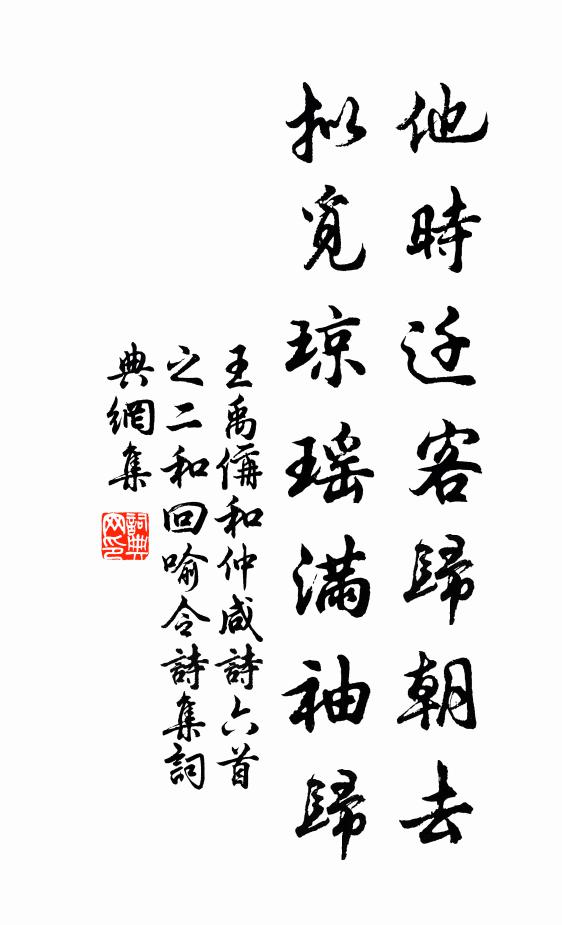 他時迁客歸朝去
拟覓琼瑤滿袖歸
王禹偁和仲咸詩六首
之二和回喻令詩集詞
典網集
詞典
网印